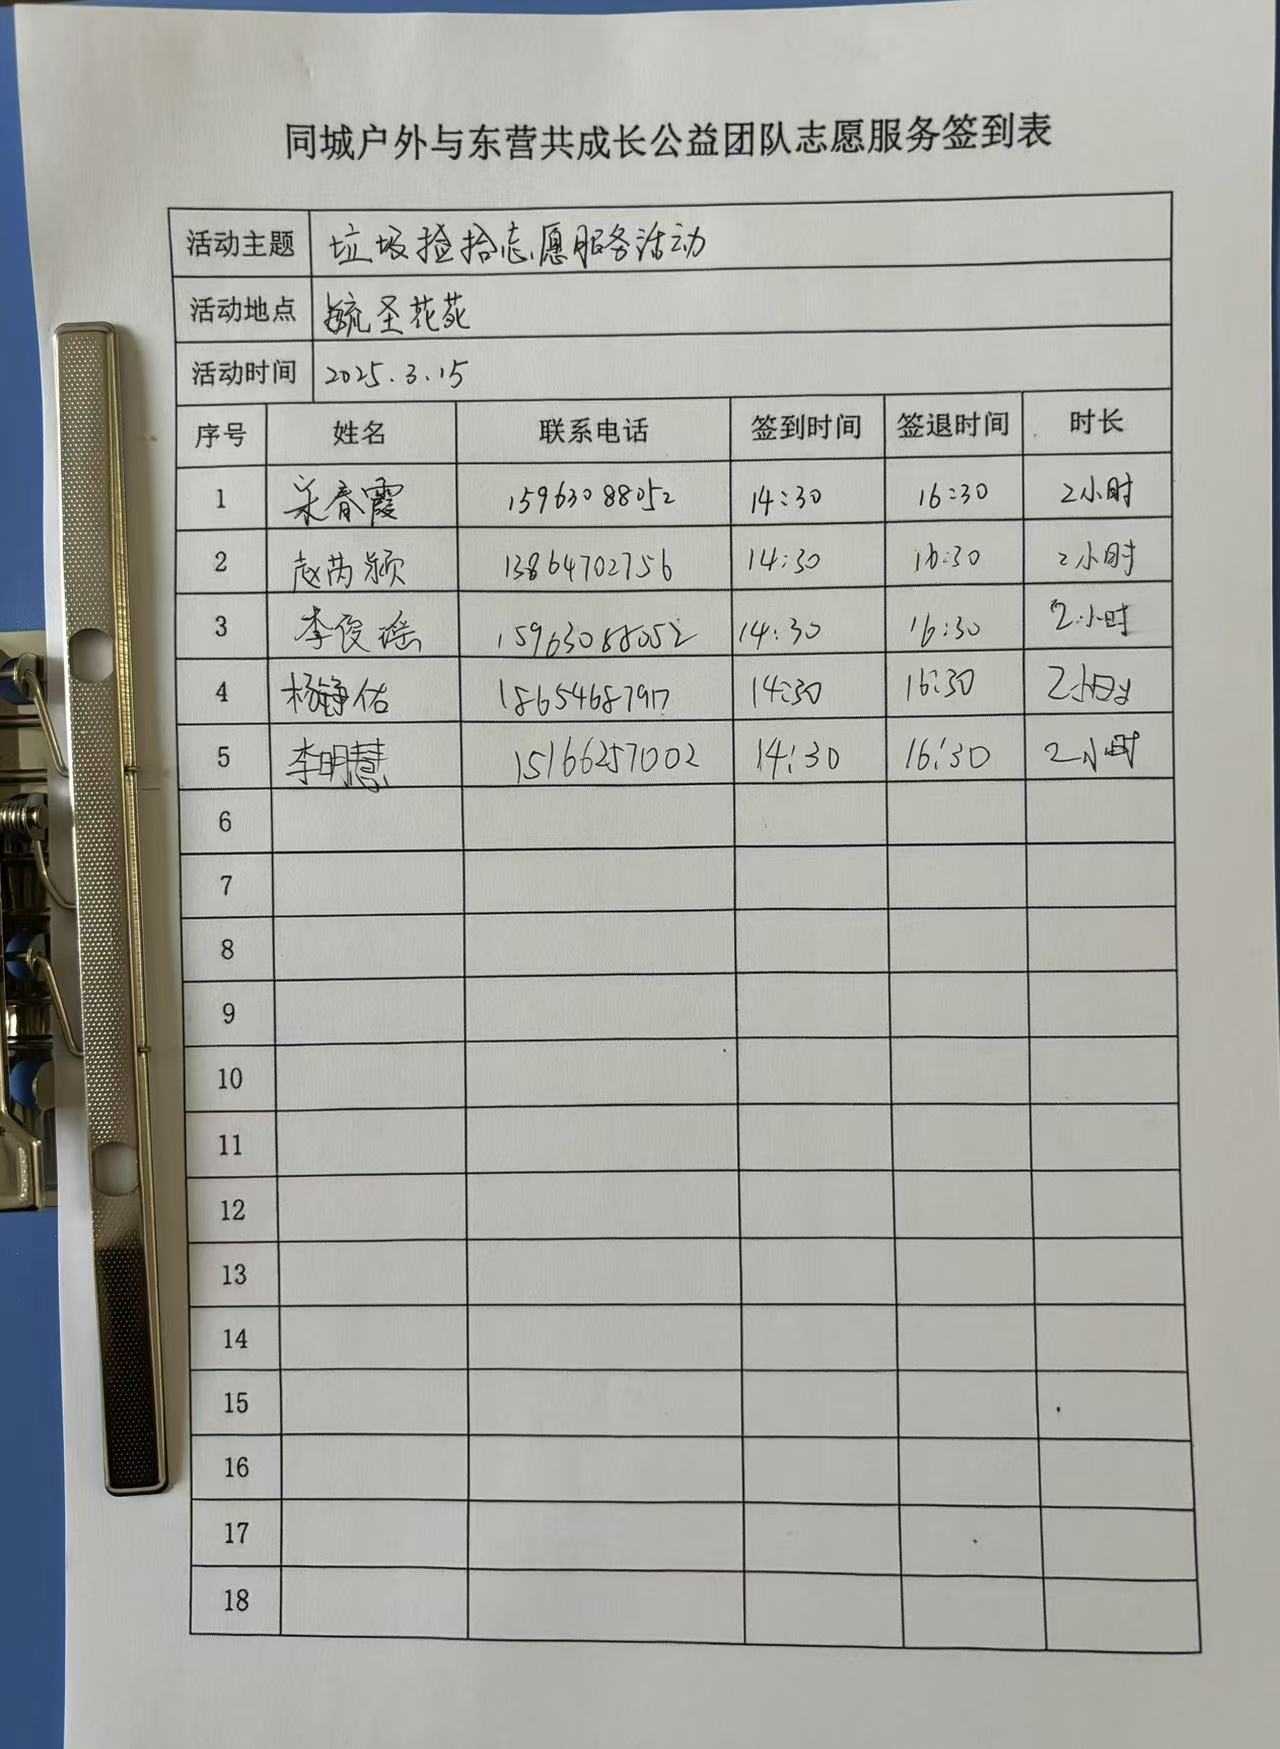 同城户外与东营共成长公益团队志愿服务签到表
活动主题 垃圾捡拾志愿服务活动
活动地点 毓圣花苑
活动时间 2025.3.15
序号 姓名 联系电话 签到时间 签退时间 时长
1 春霞 15963088052 14:30 16:30 2小时
2 赵芮颍 13864702756 14:30 16:30 2小时
3 李俊瑶 15963088052 14:30 16:30 2小时
4 杨铮佑 14:30 16:30 2小时
5 李明慧 15166257002 14:30 16:30 2小时
6
7
8
9
10
11
12
13
14
15
16
17
18